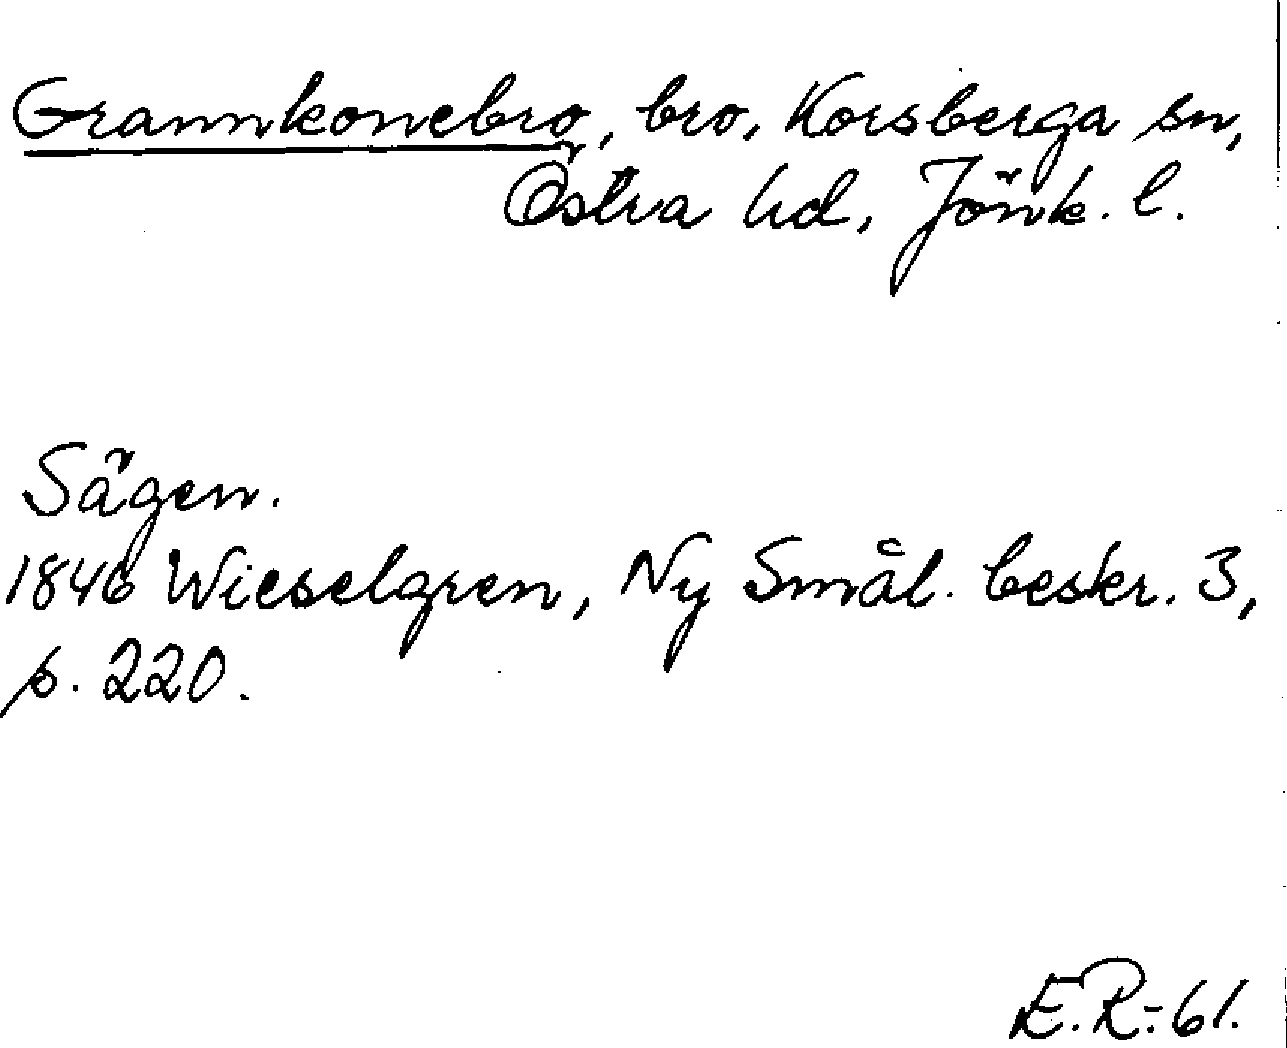 Grannkonebro, bro, Korsberga sn,
Östra hd, Jönk. l.
Sägen.
1846 Wieselgren, Ny Smål. beskr. 3,
s. 220.
E.R.-61.